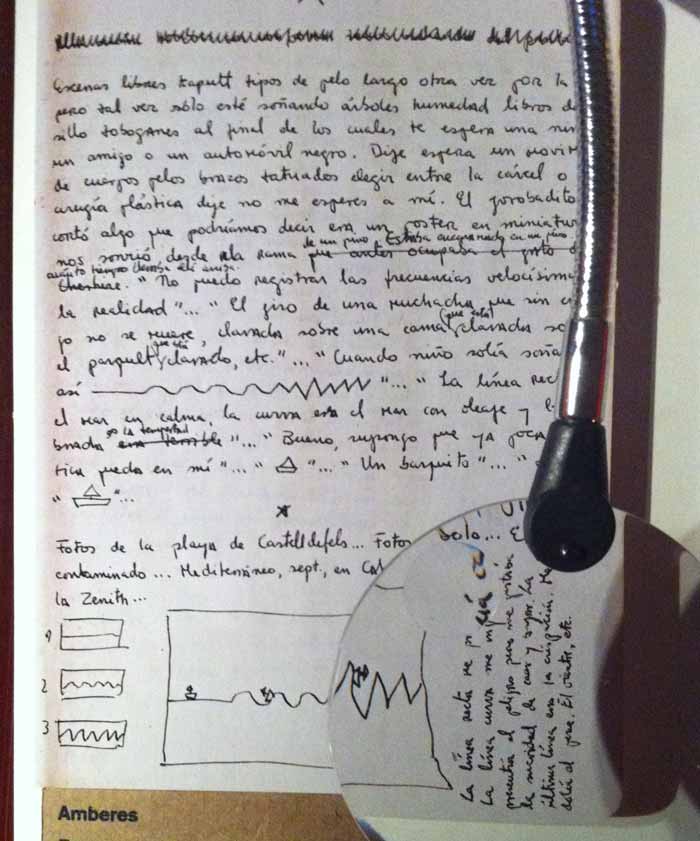 Escenas libres kaputt tipos de pelo largo otra vez por la
pero tal vez sólo esté soñando árboles humedad libros de
sillo toboganes al final de los cuales te espera una
un amigo o un automóvil negro. Dije espera un movim
de cuerpos pelos brazos tatuados elegir entre la cárcel o
cirugía plástica dije no me esperes a mí. El jorobadito
cortó algo que podríamos decir era un poster en miniatur
nos sonrió desde la rama
de un pino. Estaba encaramado en un pino.
que antes ocupaba el gato de
cuánto tiempo llevaba allí arriba.
Cheshire. "No puedo registrar las frecuencias velocísima
la realidad"... "El giro de una muchacha que sin
go no se mueve, clavada sobre una cama (que está) clavada so
el parquett (que está) clavado, etc."... "Cuando niño solía soña
así "... "La línea rec
el mar en calma, la curva era el mar con oleaje y
brada es la tempestad era terrible"... "Bueno, supongo que ya poca
tica queda en mí"... " "... "Un barquito"...
" "...
Fotos de la playa de Castelldefels... Fotos
contaminado... Mediterráneo, sept., en
la Zenith...
1
2
3
solo...
La línea recta me
La línea curva me
presentía el peligro pero me gustaba
la La
última línea era la crispación. Me
dolía el pene. El vientre, etc.
Amberes